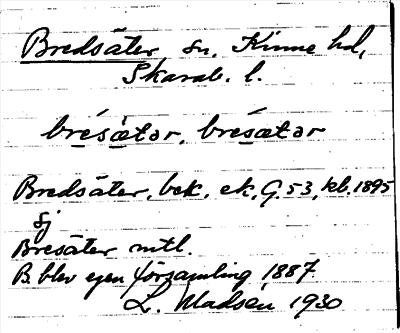 Bredsäter sn, Kinne hd,
Skarab. l.
bre̱´sä̱tər, bre̱´sætər
Bredsäter, bek, ek, G. 53, kb. 1895
sj
Bresäter mtl.
B. blev egen församling 1887
L. Madsén 1930